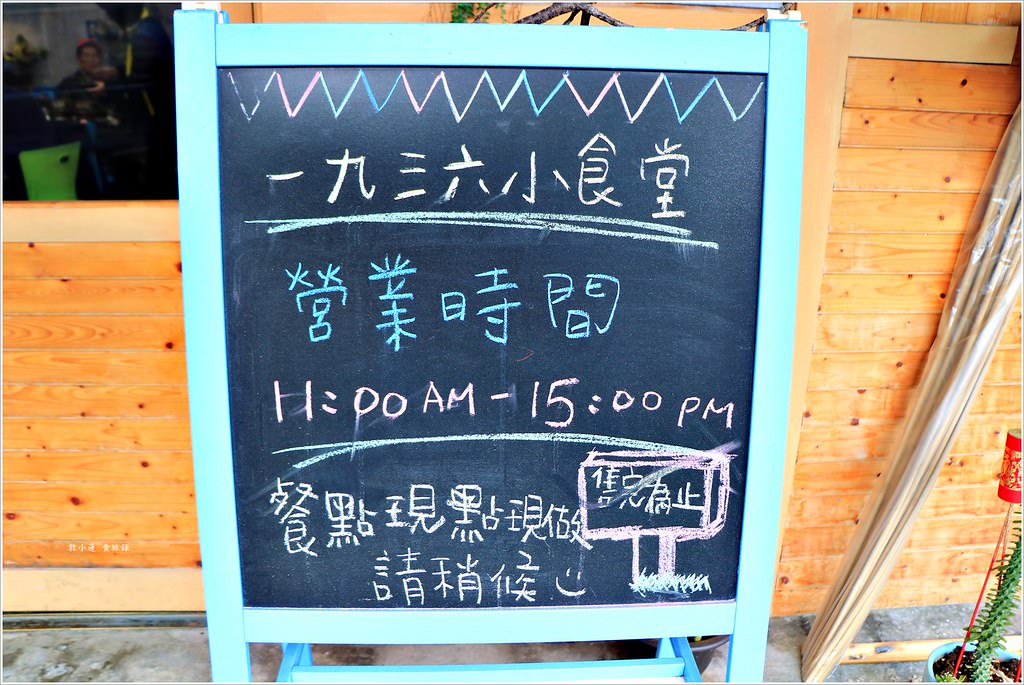 一九三六小食堂
營業時間
11:00 AM - 15:00 PM
售完為止
餐點現點現做
請稍候
敦小蓮 食旅錄